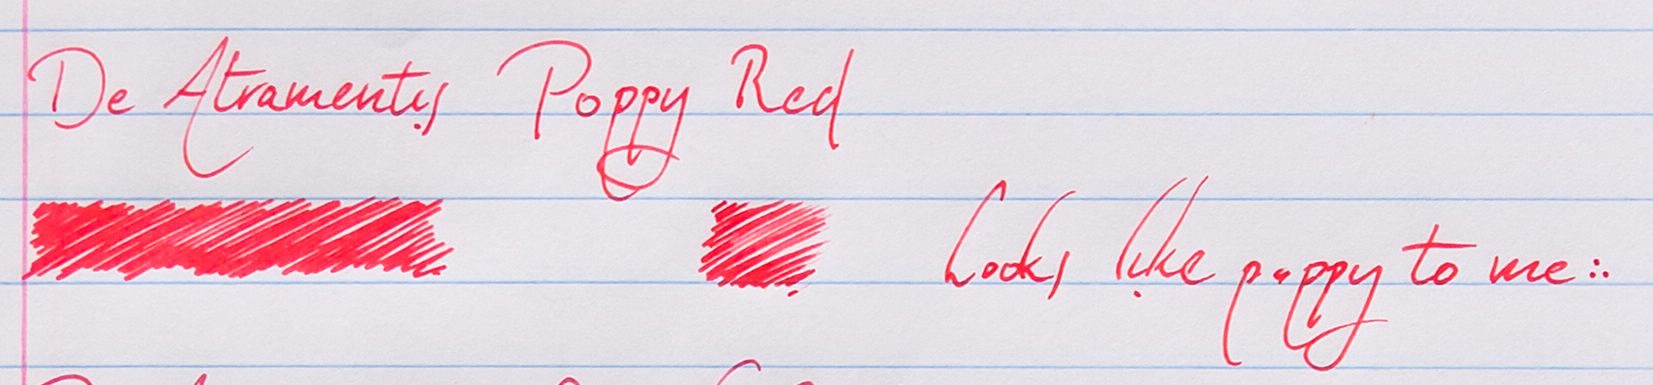 De Atramentis Poppy Red
Looks like poppy to me :.